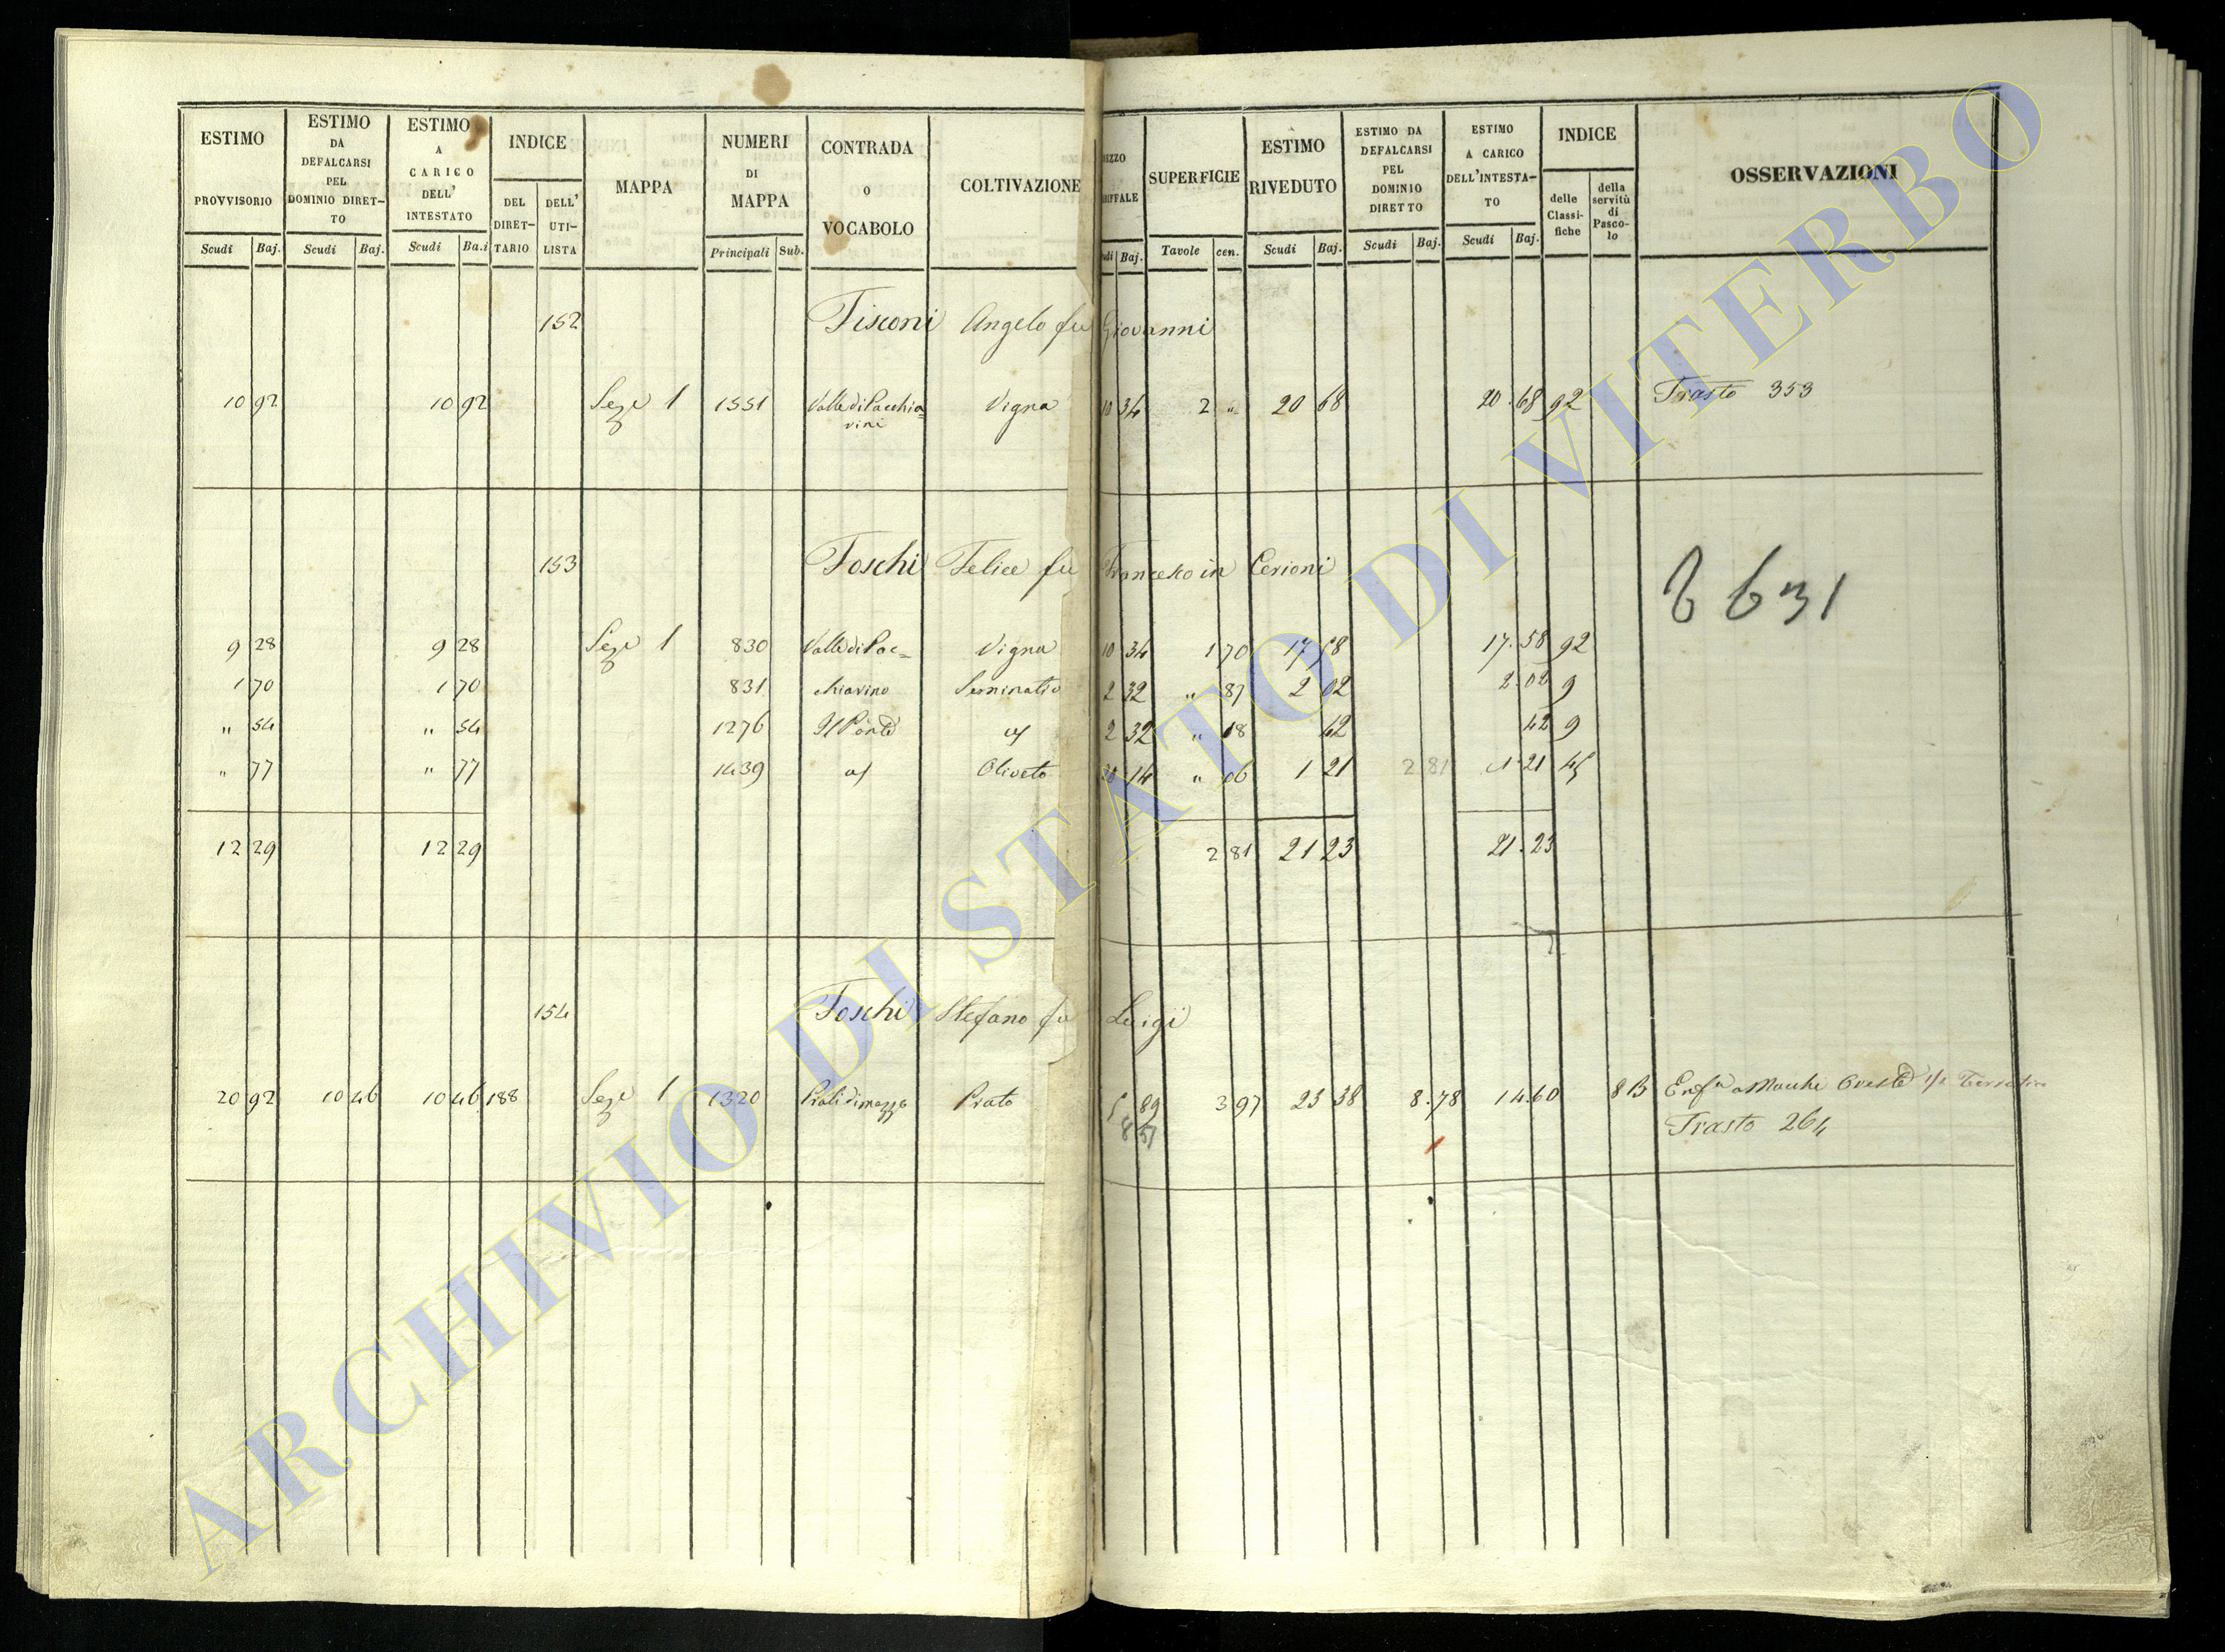 ESTIMO PROVVISORIO Scudi Baj.
ESTIMO DA DEFALCARSI PEL DOMINIO DIRET-TO Scudi Baj.
ESTIMO A CARICO DELL' INTESTATO Scudi Ba.i
INDICE DEL DIRET-TARIO DELL' UTI-LISTA
MAPPA
NUMERI DI MAPPA Principali Sub.
CONTRADA O VOCABOLO
COLTIVAZIONE
Baj.
SUPERFICIE Tavole cen.
ESTIMO RIVEDUTO Scudi Baj.
ESTIMO DA DEFALCARSI PEL DOMINIO DIRETTO Scudi Baj.
ESTIMO A CARICO DELL'INTESTA-TO Scudi Baj.
INDICE delle Classi-fiche della servitù di Pasco-lo
OSSERVAZIONI
152 Tisconi Angelo fu Giovanni
10 92 10 92 Seze 1 1551 Valle di Pacchia= Vigna 10 34 2 " 20 68 20.68 92 Trasto 353
vini
153 Foschi Felice fu Francesco in Cerioni
8631
9 28 9 28 Seze 1 830 Valle di Pac= Vigna 10 34 1 70 17 58 17.58 92
1 70 1 70 831 chiavino Seminativo 2 32 " 87 2 02 2.02 9
" 54 " 54 1276 2 32 " 18 42 42 9
" 77 " 77 1439 Oliveto 14 " 06 1 21 2 81 1.21 45
12 29 12 29 2 81 21 23 21.23
154 Foschi Stefano fu Luigi
20 92 10 46 10 46 188 Seze 1 1320 Prati di mezzo Prato 5 89 3 97 23 38 8.78 14.60 8 B
8 51 Trasto 264
ARCHIVIO DI STATO DI VITERBO